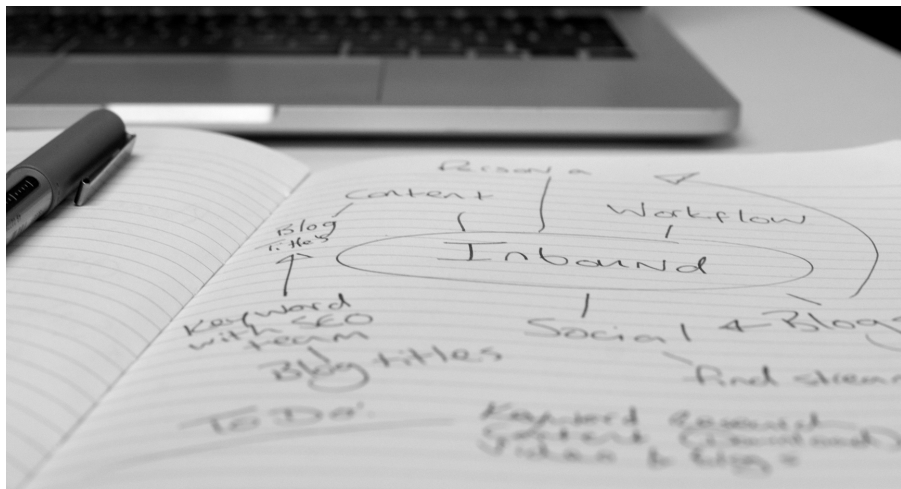 Persona
Content
Workflow
Blog
Titles
Inbound
Keyword
with SEO
team
Social
Blogs
Blog titles
Find stream
To Do:
Keyword Research
Content (Download)
Video & blogs